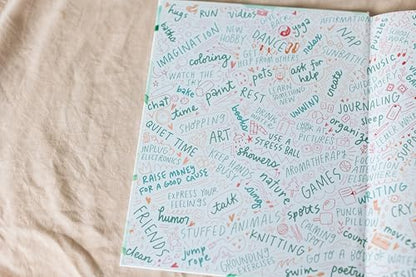 hugs
RUN
videos
AFFIRMATION
baths
NEW
HOBBY
DANCE
yoga
NAP
puzzles
IMAGINATION
GET HELP
FROM OTHERS
relax
SUNSHINE
coloring
MUSIC
WATCH THE
SKY
pets
ask for
help
create
GUIDED
bake
REST
LEARN
SOMETHING
NEW
JOURNALING
chat
time
paint
UNWIND
SLEEP
SHOPPING
books
organize
QUIET TIME
ART
DRINK
USE A
STRESS BALL
LOOK AT
PICTURES
UNPLUG
ELECTRONICS
showers
AROMATHERAPY
KEEP HANDS
BUSY
RAISE MONEY
FOR A GOOD CAUSE
nature
GAMES
WRITING
EXPRESS YOUR
FEELINGS
sing
CRY
FRIENDS
talk
sports
CALMING
SPOT
humor
STUFFED ANIMALS
count
movie
KNITTING
clean
jump
rope
GROUNDING
EXERCISES
swim
GO TO A BODY
OF WATER
poetry